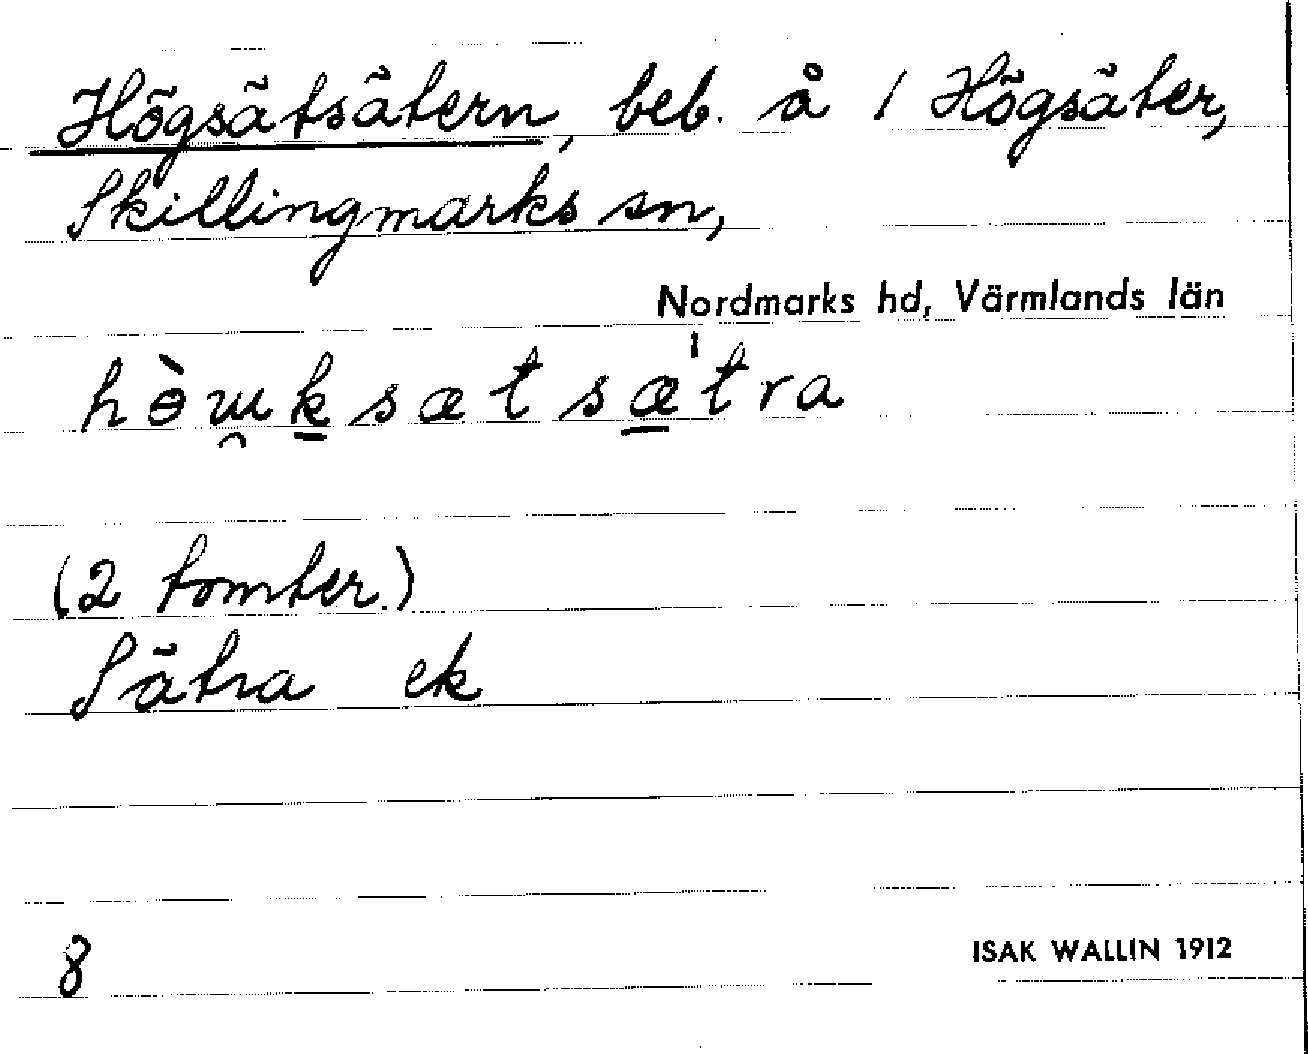 Högsätsätern, beb. å 1 Högsäter,
Skillingmarks sn,
Nordmarks hd, Värmlands län
hɵ̀ɯ̯k̠sætsæ̠ˈtra
(2 tomter.)
Sätra ek
8
ISAK WALLIN 1912